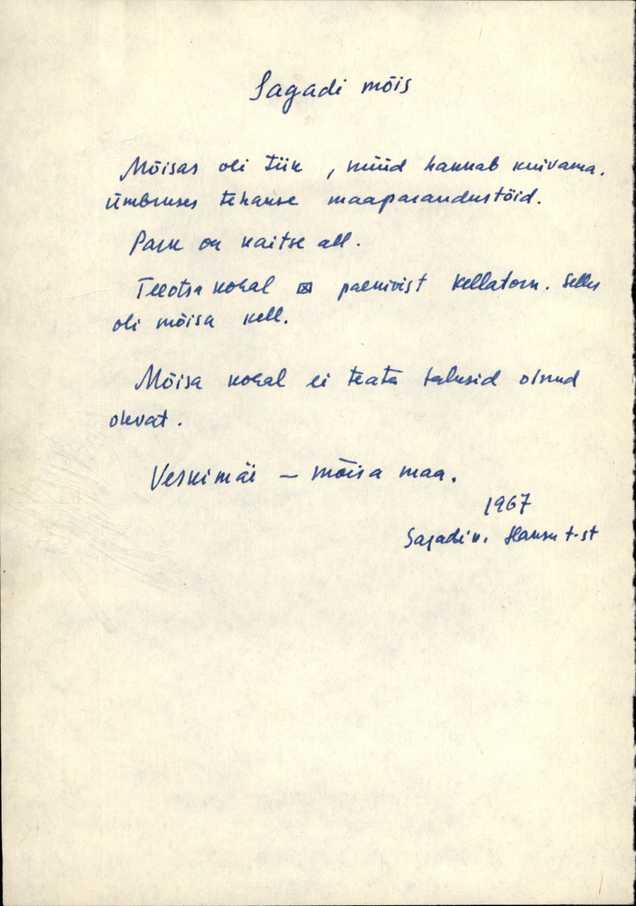 Sagadi mõis
Mõisas oli tiik, nüüd hakkab kuivama.
Ümbruses tehakse maaparandustöid.
Park on kaitse all.
Teeotsa kohal paekivist kellatorn. Selles
oli mõisa kell.
Mõisa kohal ei teata talusid olnud
olevat.
Veskimäi – mõisa maa.
1967
Sagadi k. t-st